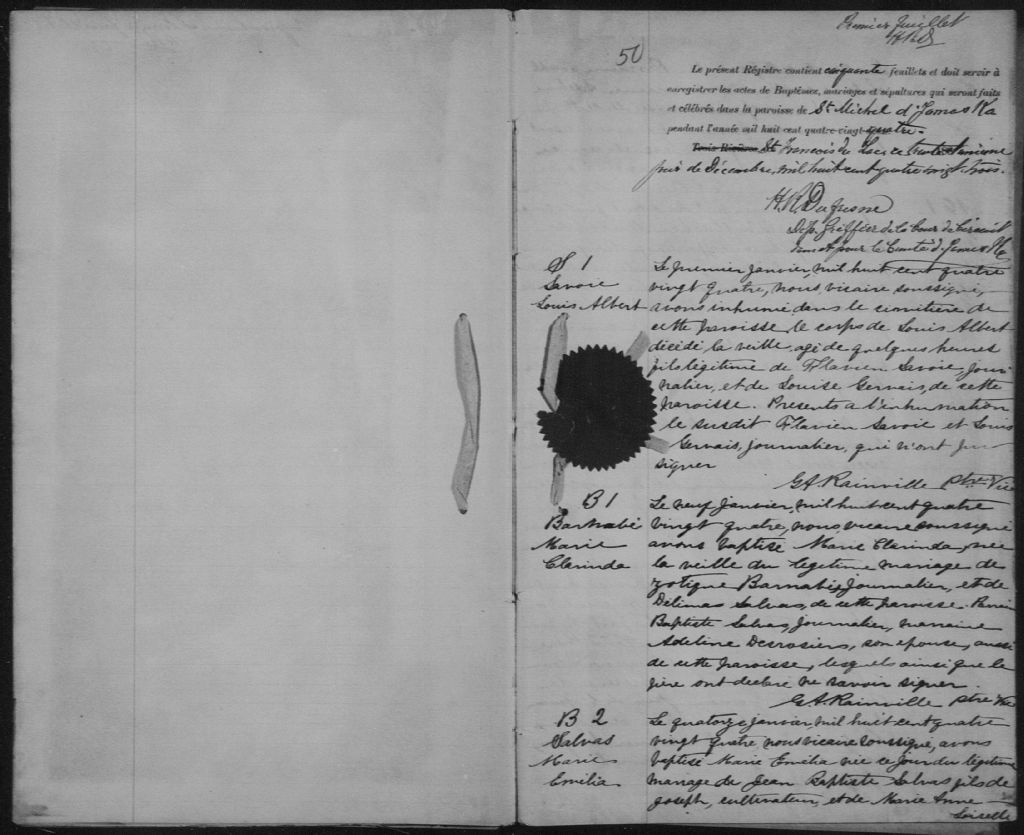 Premier feuillet
50
Le présent Régistre contient cinquante feuillets et doit servir à
enregistrer les actes de Baptêmes, mariages et sépultures qui seront faits
et célébrés dans la paroisse de St Michel d'Yamaska
pendant l'année mil huit cent quatre-vingt-quatre.
Trois Rivières St François du Lac, ce trente unième
jour de Décembre, mil huit cent quatre vingt trois.
H. R. Dufresne
Dep. Greffier de la Cour de Circuit
dans et pour le Comté d'Yamaska
S 1
Savoie
Louis Albert
Le premier janvier, mil huit cent quatre
vingt quatre, nous, vicaire soussigné,
avons inhumé dans le cimitière de
cette paroisse le corps de Louis Albert
décédé la veille, agé de quelques heures
fils légitime de Flavien Savoie, jour-
nalier, et de Louise Gervais, de cette
paroisse. Presents a l'inhumation
le susdit Flavien Savoie et Louis
Gervais, journalier, qui n'ont pu
signer
G A. Rainville ptre Vic
B 1
Barnabé
Marie
Clarinda
Le neuf janvier, mil huit cent quatre
vingt quatre, nous vicaire soussigné
avons baptisé Marie Clarinda, née
la veille du légitime mariage de
Zotique Barnabé, journalier, et de
Délimas Salvas, de cette paroisse. Parrain
Baptiste Salvas, journalier, marraine
Adeline Desrosiers, son epouse, aussi
de cette paroisse, lesquels ainsi que le
père ont declaré ne savoir signer.
G A. Rainville ptre Vic
B 2
Salvas
Marie
Emilia
Le quatorze janvier, mil huit cent quatre
vingt quatre, nous vicaire soussigné, avons
baptisé Marie Emélia née ce jour du légitime
mariage de Jean Baptiste Salvas fils de
Joseph, cultivateur, et de Marie Anne
Loiselle